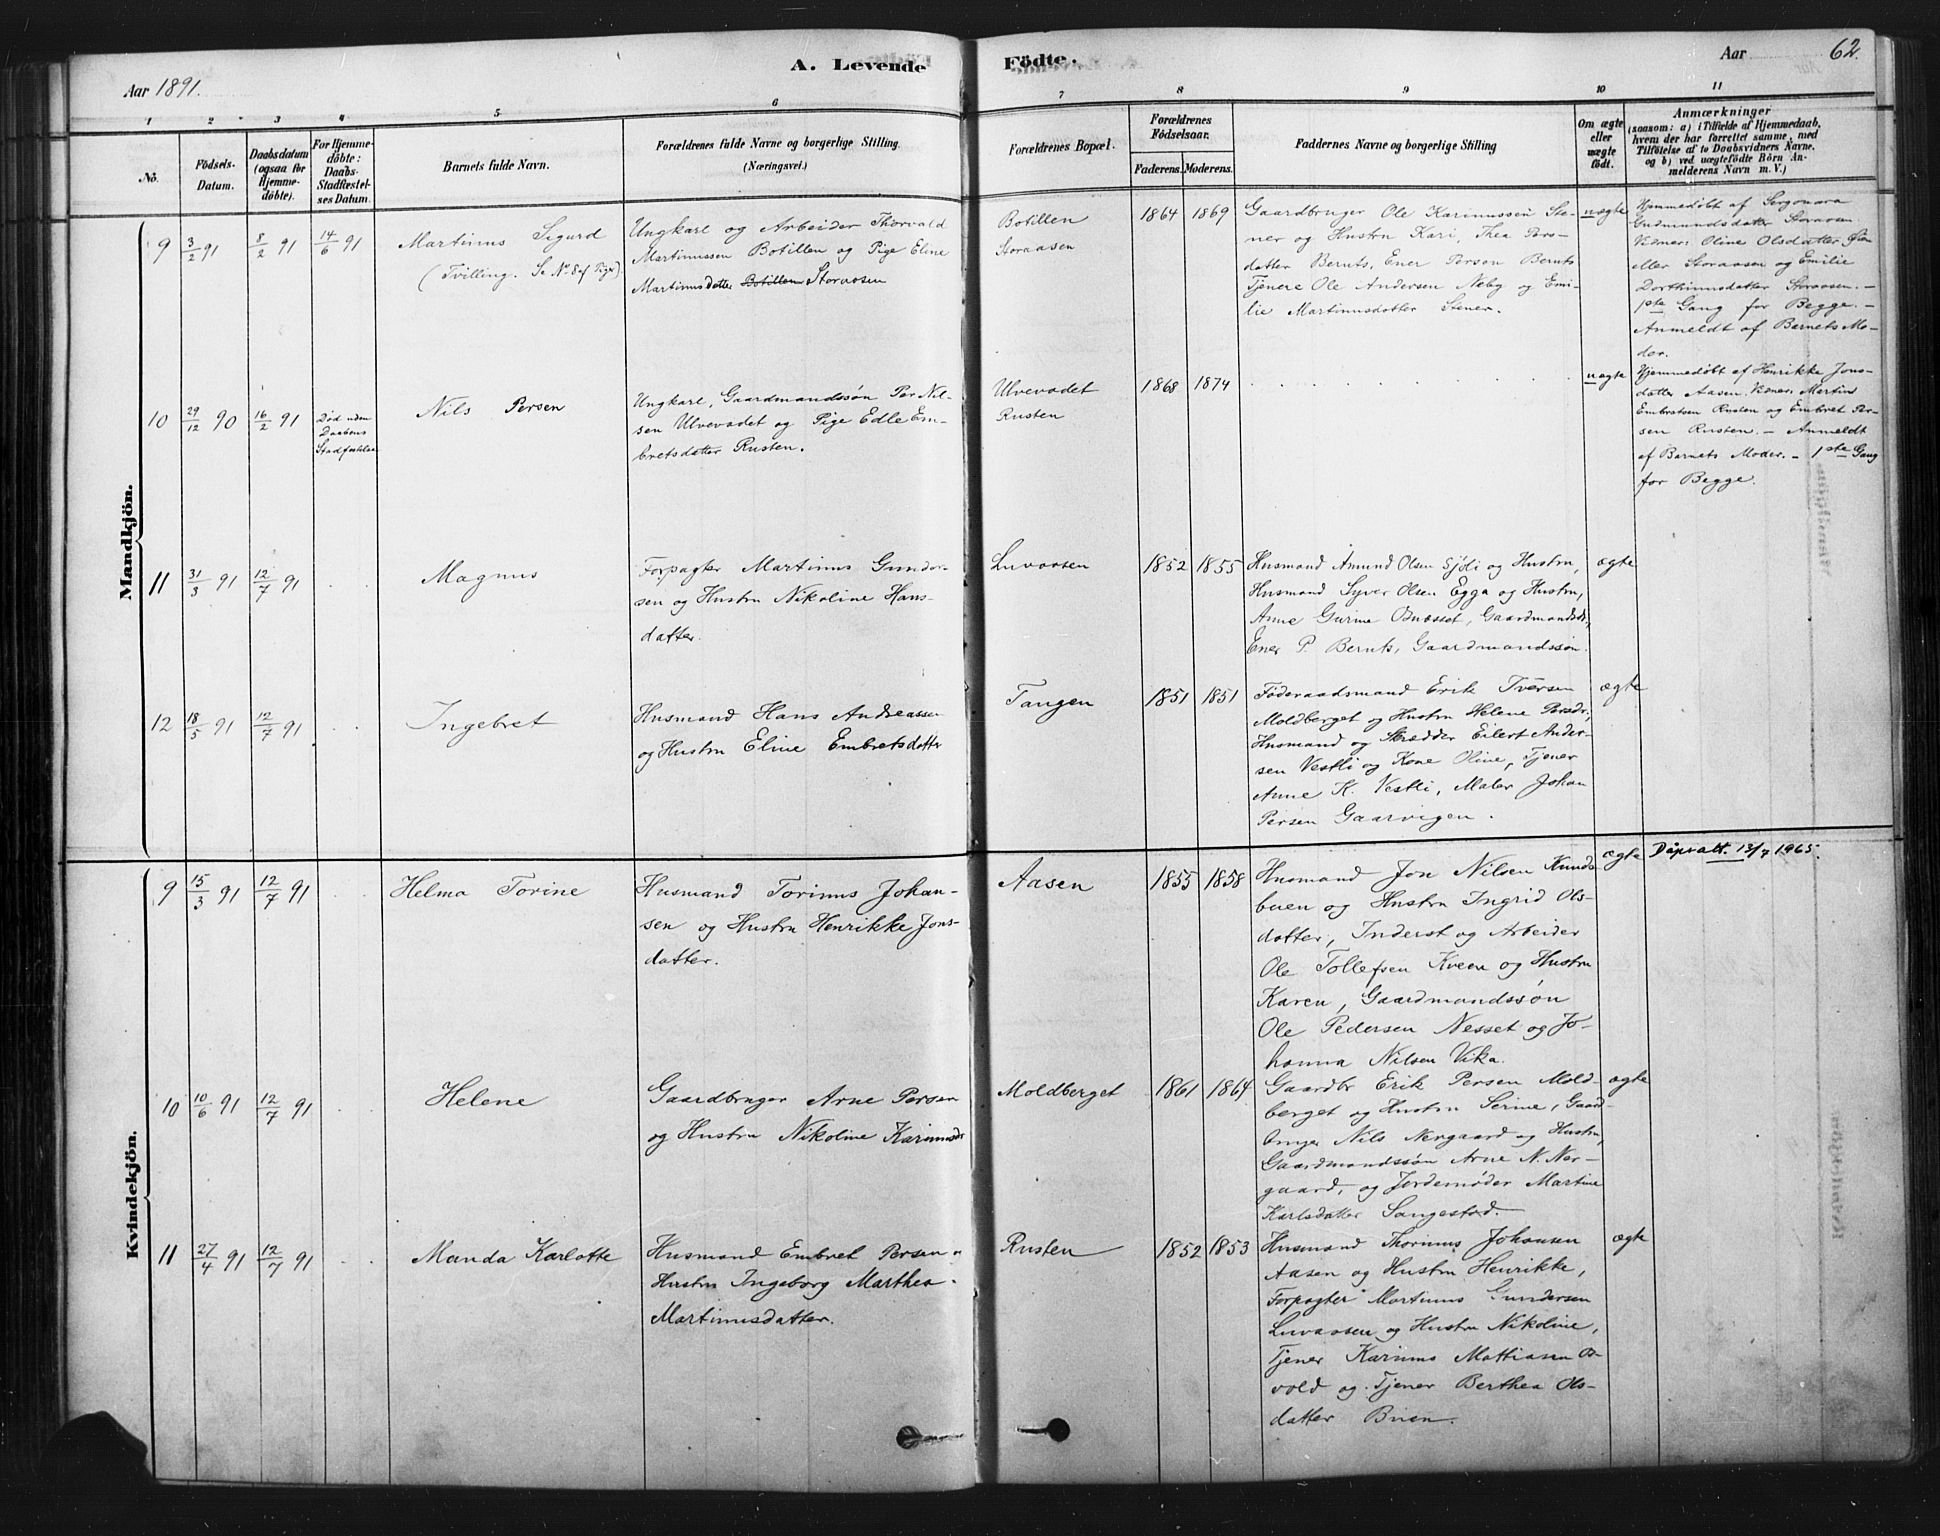 A. Levende Födte.
Aar 1891.
Aar 62.
1 2 3 4 5 6 7 8 9 10 11
No.
Födsels-
Datum.
Daabsdatum
(ogsaa for
Hjemme-
döbte).
For Hjemme-
döbte:
Daabs-
Stadfæstel-
ses Datum.
Barnets fulde Navn.
Forældrenes fulde Navne og borgerlige Stilling.
(Næringsvei.)
Forældrenes Bopæl.
Forældrenes
Födselsaar.
Faderens. Moderens.
Faddernes Navne og borgerlige Stilling
Om ægte
eller
uægte
födt.
Anmærkninger
(saasom: a) i Tilfælde af Hjemmedaab,
hvem der har forrettet samme, med
Tilföielse af to Daabsvidners Navne,
og b) ved uægtefödte Börn An-
melderens Navn m. V.)
Mandkjön.
9 3/2 91 8/2 91 14/6 91
Martinus Sigurd
(Tvilling. Se No 8 af Piger)
Ungkarl og Arbeider Thorvald
Martinussen Botillen og Pige Eline
Martinusdatter Botillen Storaasen
Botillen
Storaasen
1864 1869
Gaardbruger Ole Karinussen Ste-
ner og Hustru Kari, Thea Pers-
datter Beruts, Ener Persen Beruts
Tjenere Ole Andersen Neby og Emi-
lie Martinusdatter Stener.
uægte
Hjemmedøbt af
Gudmundsdatter Storaasen
Vidner: Oline Olsdatter
eller Storaasen og Emilie
Dorthinusdatter Storaasen. –
1ste Gang for Begge. –
Anmeldt af Barnets Mo-
der.
10 29/12 90 16/2 91
Død uden
Daabens
Stadfæstelse
Nils Persen
Ungkarl, Gaardmandssøn Per Nil-
sen Ulvevadet og Pige Edle Em-
bretsdatter Rusten.
Ulvevadet
Rusten
1868 1874
uægte
Hjemmedøbt af Henrikke Jons-
datter Aasen. Vidner: Martin
Embretsen Rusten og Embret Per-
sen Rusten. – Anmeldt
af Barnets Moder. – 1ste Gang
for Begge.
11 31/3 91 12/7 91
Magnus
Forpagter Martinus Gunder-
sen og Hustru Nikoline Hans-
datter.
Luvaasen
1852 1855
Husmand Amund Olsen Sjøli og Hustru,
Husmand Syver Olsen Egga og Hustru,
Anne Gurine, Gaardmandsdr,
Ener P. Beruts, Gaardmandssøn.
ægte
12 18/5 91 12/7 91
Ingebret
Husmand Hans Andreassen
og Hustru Eline Embretsdatter
Tangen
1851 1851
Føderaadsmand Erik Iversen
Moldberget og Hustru Helene Persdr,
Husmand og Skrædder Eilert Ander-
sen Vestli og Kone Oline, Tjener
Anne K. Vestli, Maler Johan
Persen Gaarvigen.
ægte
Kvindekjön.
9 15/3 91 12/7 91
Helma Torine
Husmand Torinus Johan-
sen og Hustru Henrikke Jons-
datter.
Aasen
1855 1858
Husmand Jon Nilsen Kunds-
buen og Hustru Ingrid Ols-
datter, Inderst og Arbeider
Ole Tollefsen Kveen og Hustru
Karen, Gaardmandssøn
Ole Pedersen Nesset og Jo-
hanna Nilsen Vika.
ægte
Dåpsatt. 13/7 1965.
10 10/6 91 12/7 91
Helene
Gaardbruger Arne Persen
og Hustru Nikoline Karinusdr
Moldberget
1861 1864
Gaardbr Erik Persen Mold-
berget og Hustru Serine, Gaard-
bruger Nils Nergaard og Hustru,
Gaardmandssøn Arne N. Ner-
gaard, og Jordemøder Martine
Karlsdatter Sangestad.
ægte
11 27/4 91 12/7 91
Manda Karlotte
Husmand Embret Persen og
Hustru Ingeborg Marthea
Martinusdatter.
Rusten
1852 1853
Husmand Thorinus Johansen
Aasen og Hustru Henrikke,
Forpagter Martinus Gundersen
Luvaasen og Hustru Nikoline,
Tjener Karinus Mattiasen Os-
vold og Tjener Berthea Ols-
datter Buen.
ægte